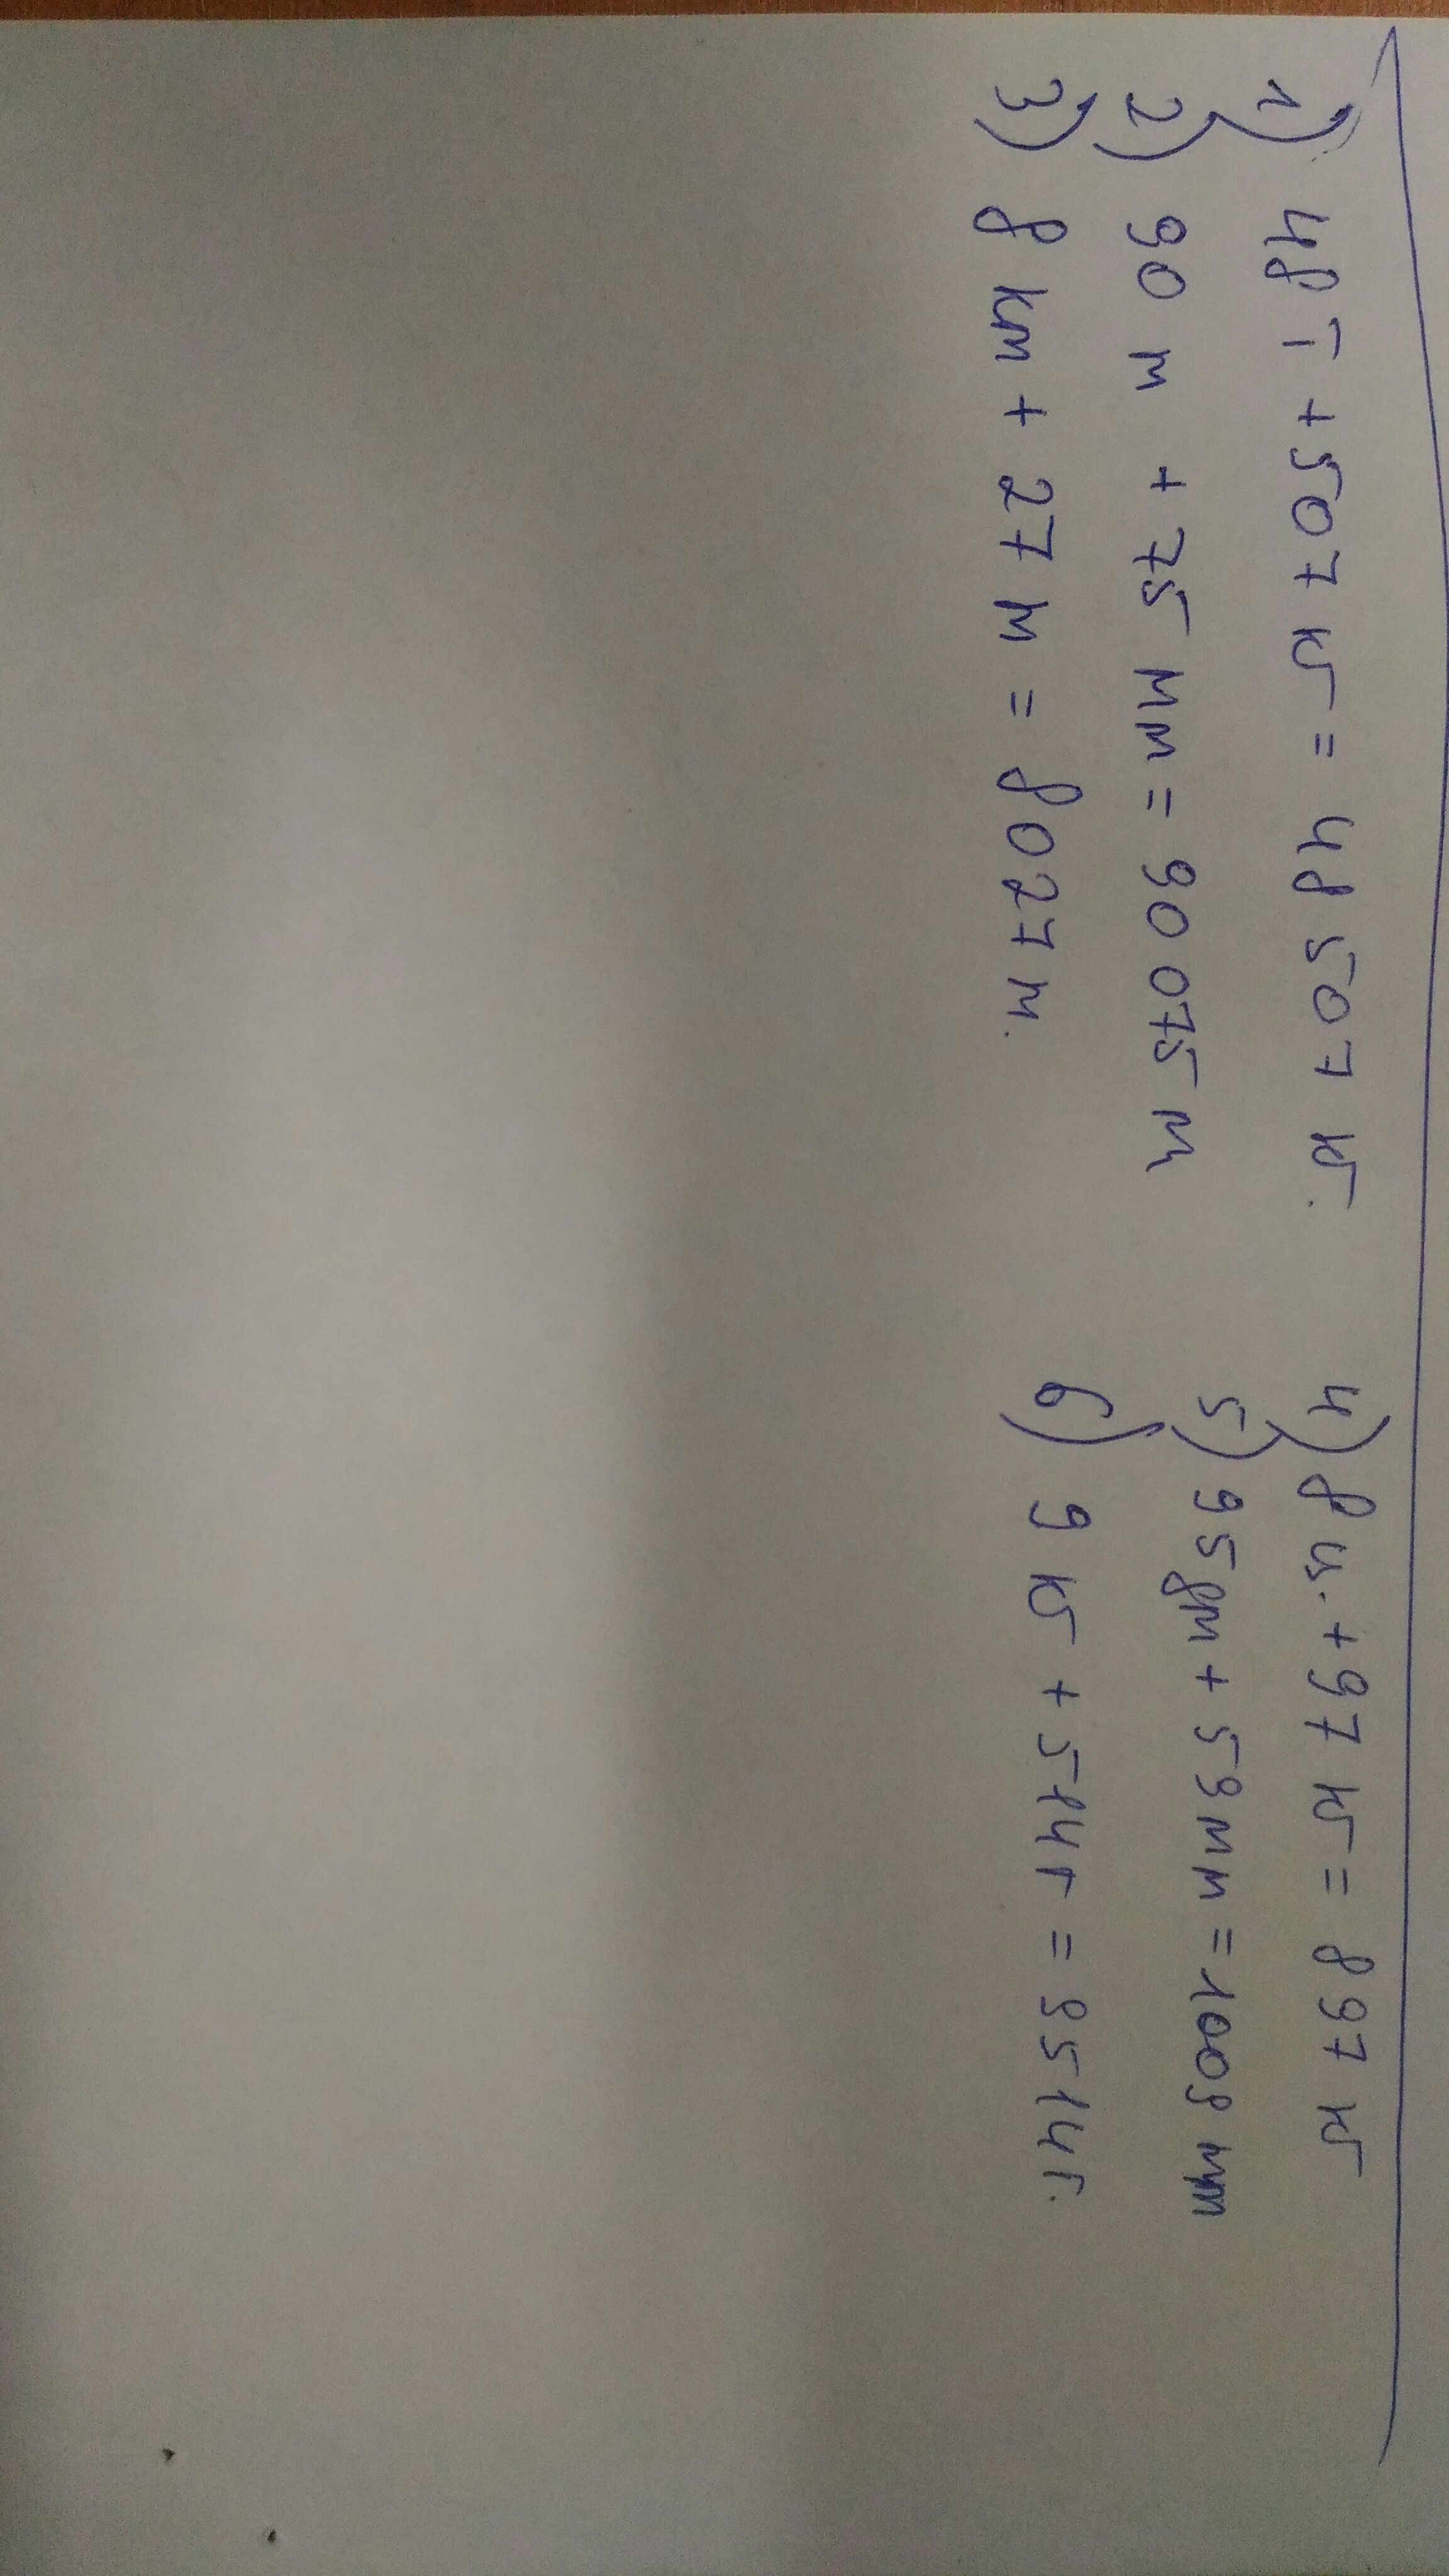 1) 48 т + 507 кг = 48 507 кг.
2) 90 м + 75 мм = 90 075 м
3) 8 км + 27 м = 8027 м.
4) 8 ц. + 97 кг = 897 кг
5) 95 дм + 59 мм = 1009 мм
6) 9 кг + 514 г = 9514 г.